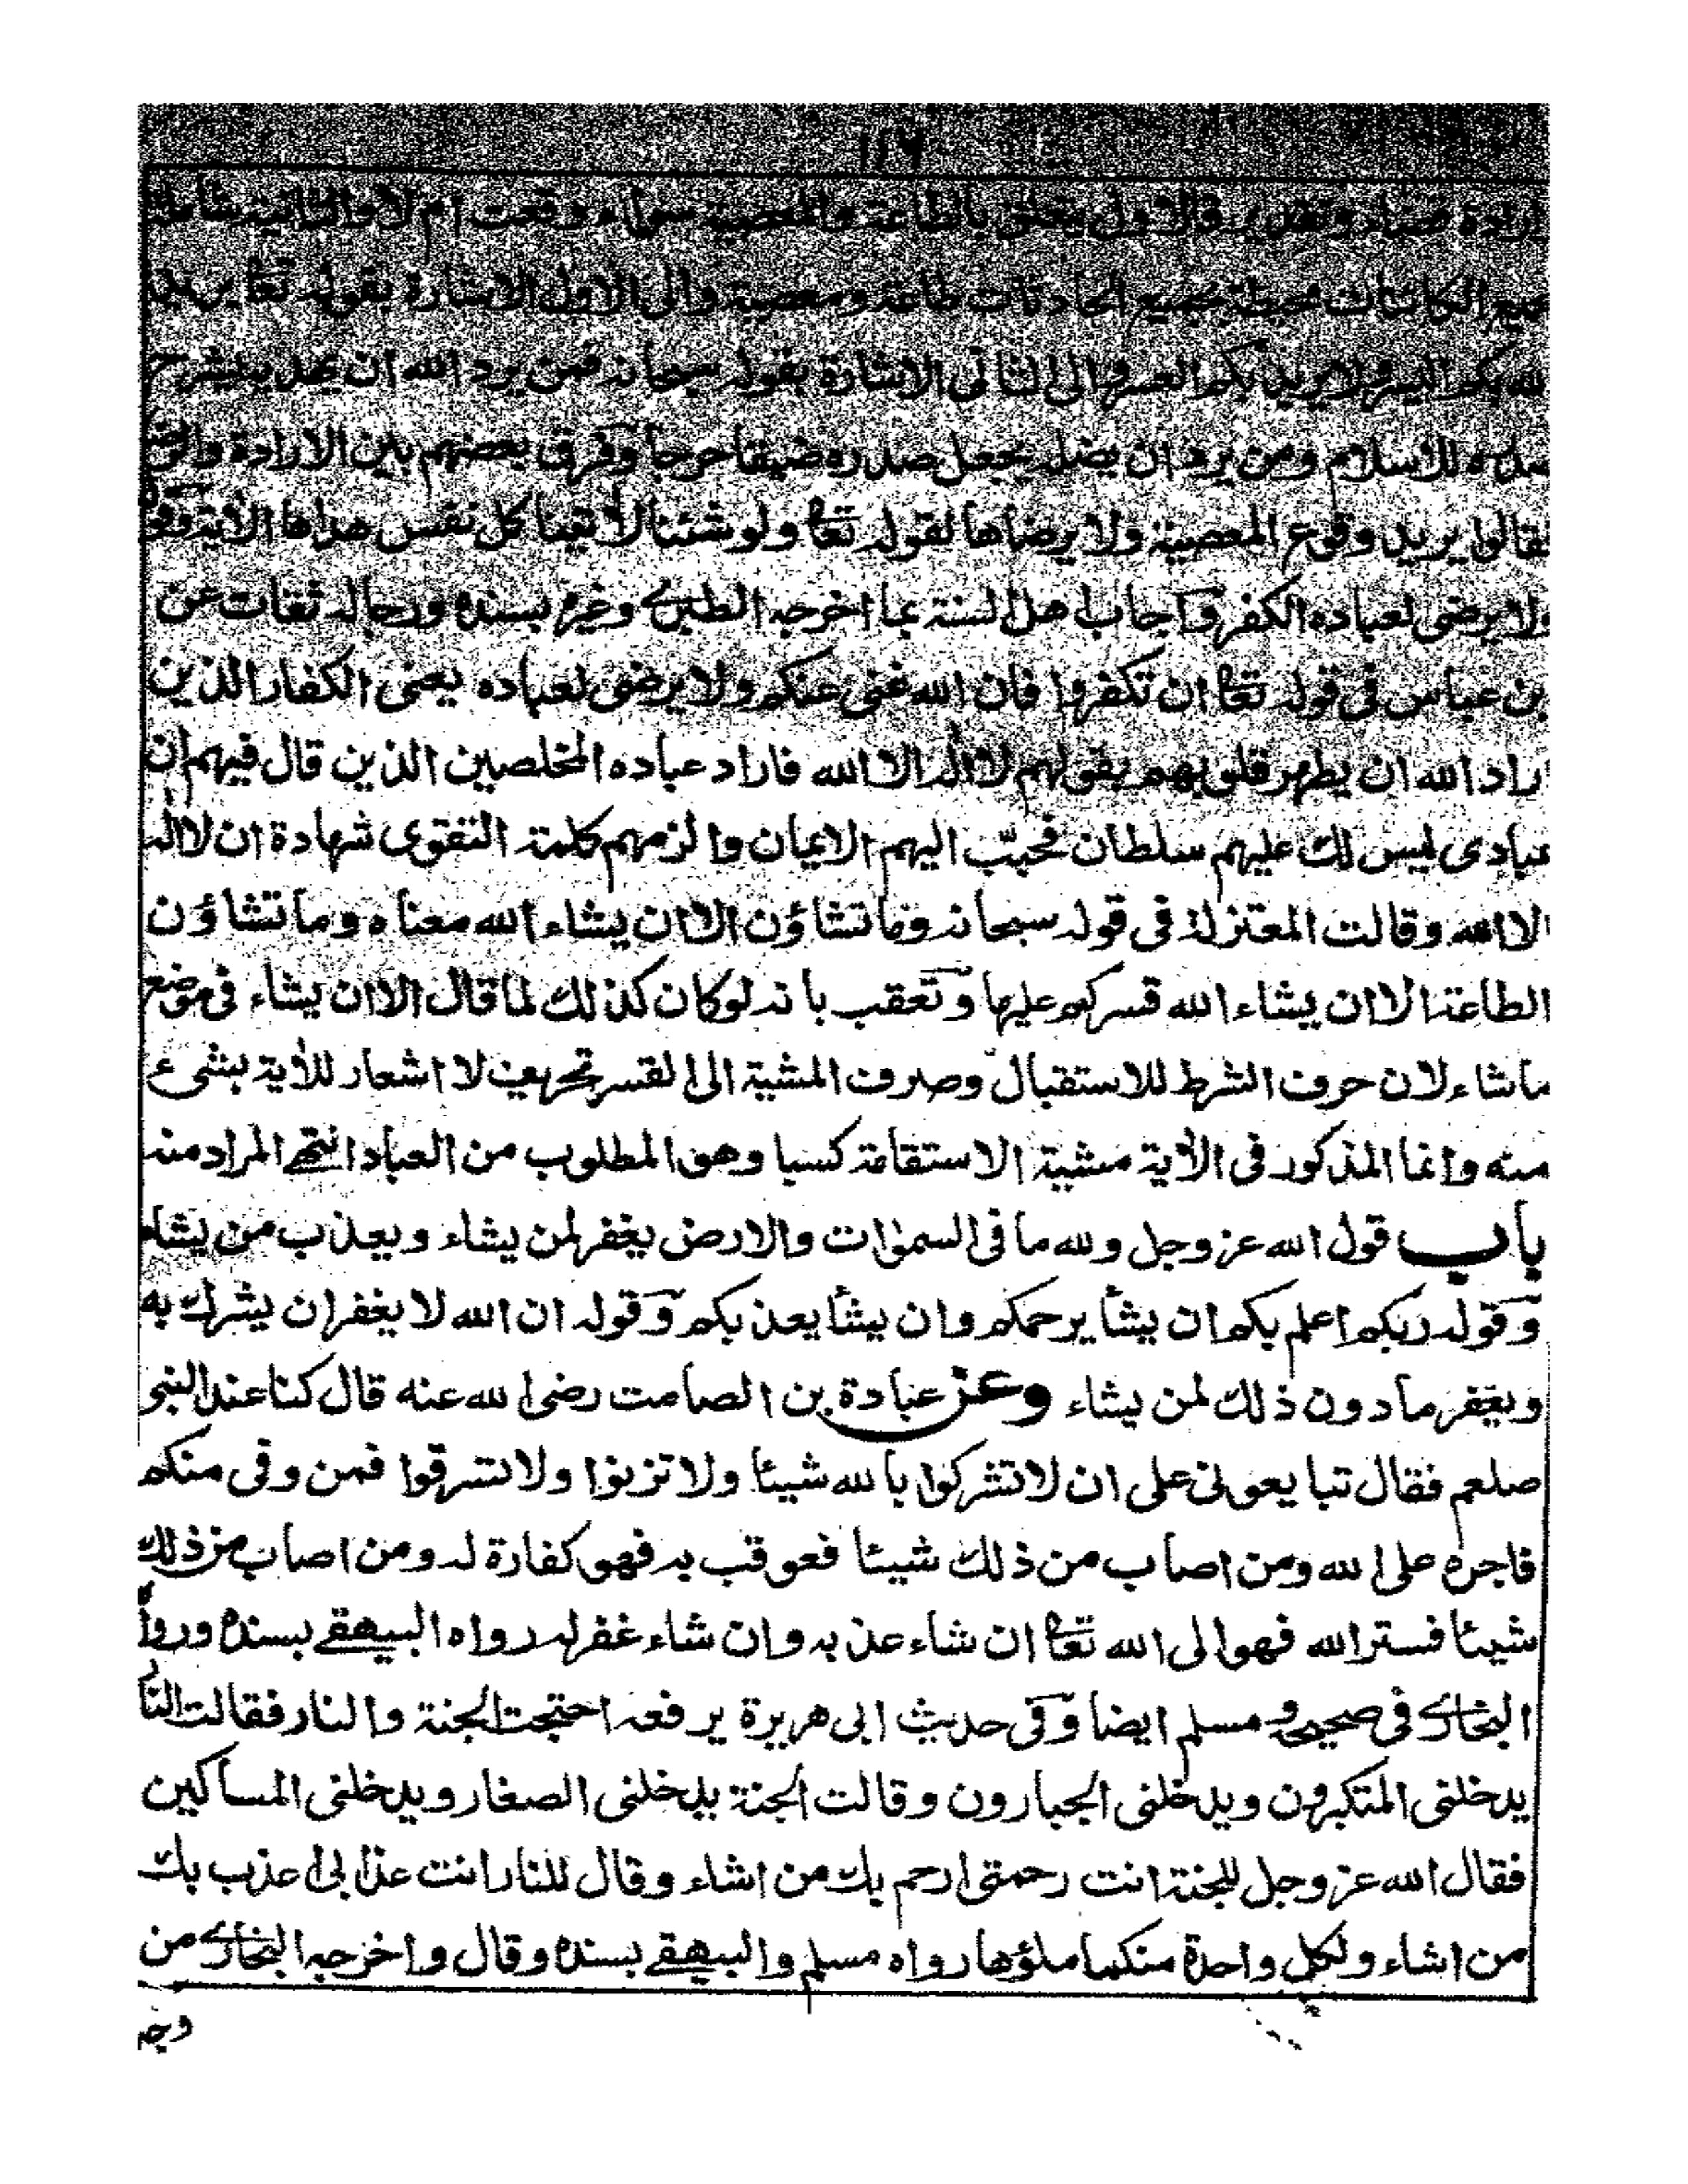 ١١٦
ارادة قضاء وتقدير فالاولى يتعلق بالطاعة والمعصية سواء وقعت ام لا والثانية شاملة
جميع الكائنات محيطة بجميع الحادثات طاعة ومعصية والى الاول الاشارة بقوله تعا يريد
لله بكم اليسر ولا يريد بكم العسر والى الثانى الاشارة بقوله سبحانه فمن يرد الله ان يهديه يشرح
صدره للاسلام ومن يرد ان يضله يجعل صدره ضيقا حرجا وفرق بعضهم بين الارادة والرضى
فقالوا يريد وقوع المعصية ولا يرضاها لقوله تعا ولو شئنا لاتينا كل نفس هداها الأية وقوله
ولا يرضى لعباده الكفر واجاب اهل السنة بما اخرجه الطبرى وغيره بسنده ورجاله ثقات عن
بن عباس فى قوله تعا ان تكفروا فان الله غنى عنكم ولا يرضى لعباده يعنى الكفار الذين
راد الله ان يطهر قلوبهم بقولهم لا اله الا الله فاراد عباده المخلصين الذين قال فيهم ان
عبادى ليس لك عليهم سلطان فحبّب اليهم الايمان والزمهم كلمة التقوى شهادة ان لا اله
الا الله وقالت المعتزلة فى قوله سبحانه وما تشاؤن الا ان يشاء الله معناه وما تشاؤن
الطاعة الا ان يشاء الله قسركم عليها وتعقب بانه لو كان كذلك لما قال الا ان يشاء فى موضع
ما شاء لان حرف الشرط للاستقبال وصرف المشية الى القسر تحريف لا اشعار للأية بشىء
منه وانما المذكور فى الأية مشية الاستقامة كسبا وهو المطلوب من العباد انتهى المراد منه
باب قول الله عز وجل ولله ما فى السموات والارض يغفر لمن يشاء ويعذب من يشاء
وقوله ربكم اعلم بكم ان يشأ يرحمكم وان يشأ يعذبكم وقوله ان الله لا يغفر ان يشرك به
ويغفر ما دون ذلك لمن يشاء وعن عبادة بن الصامت رضى الله عنه قال كنا عند النبى
صلعم فقال تبايعونى على ان لا تشركوا بالله شيئا ولا تزنوا ولا تسرقوا فمن وفى منكم
فاجره على الله ومن اصاب من ذلك شيئا فعوقب به فهو كفارة له ومن اصاب من ذلك
شيئا فستر الله فهو الى الله تعا ان شاء عذبه وان شاء غفر له رواه البيهقى بسنده ورواه
البخارى فى صحيحه ومسلم ايضا وفى حديث ابى هريرة يرفعه احتجت الجنة والنار فقالت النا
يدخلنى المتكبرون ويدخلنى الجبارون وقالت الجنة يدخلنى الصغار ويدخلنى المساكين
فقال الله عز وجل للجنة انت رحمتى ارحم بك من اشاء وقال للنار انت عذابى اعذب بك
من اشاء ولكل واحدة منكما ملؤها رواه مسلم والبيهقى بسنده وقال واخرجه البخارى من
وجه